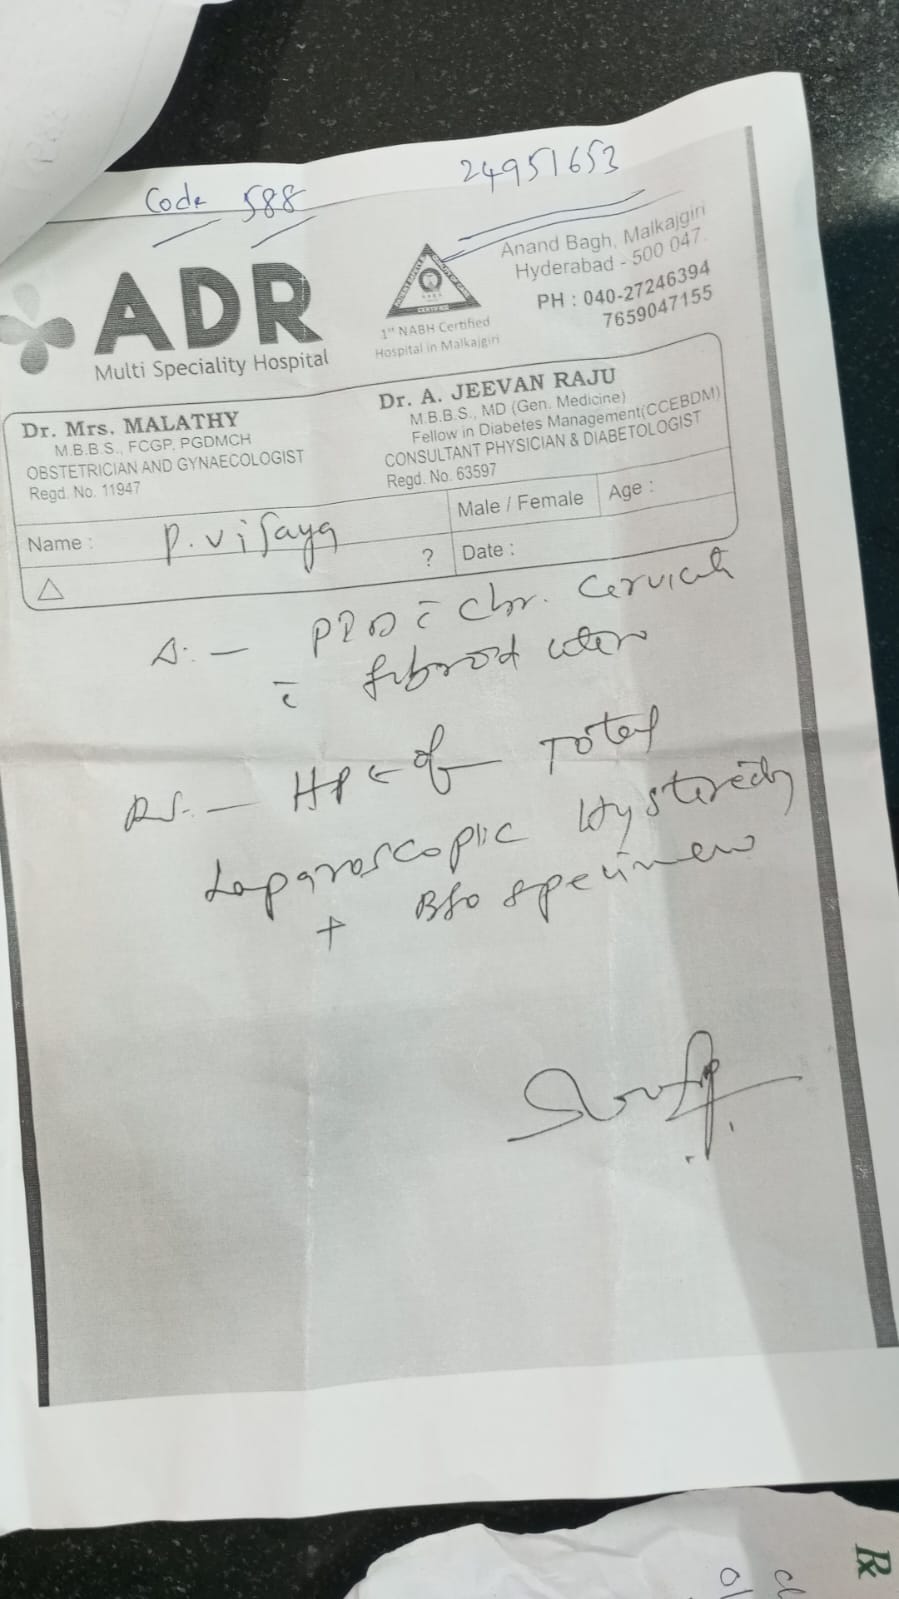 Code 588
24951653
ADR
Multi Speciality Hospital
1st NABH Certified
Hospital in Malkajgiri
Anand Bagh, Malkajgiri
Hyderabad - 500 047.
PH : 040-27246394
7659047155
Dr. Mrs. MALATHY
M.B.B.S., FCGP, PGDMCH
OBSTETRICIAN AND GYNAECOLOGIST
Regd. No. 11947
Dr. A. JEEVAN RAJU
M.B.B.S., MD (Gen. Medicine)
Fellow in Diabetes Management(CCEBDM)
CONSULTANT PHYSICIAN & DIABETOLOGIST
Regd. No. 63597
Name : P. Vijaya
Male / Female
Age :
△
?
Date :
c̄ chr.
c̄ fibroid
HPE of Total
Laparoscopic
+ BSO specimen
Rx